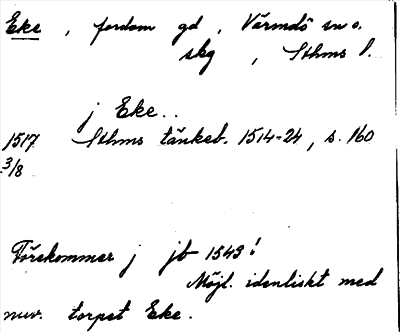 Eke, fordom gd, Värmdö sn o.
skg, Sthms l.
j Eke..
1517 Sthms tänkeb. 1514-24, s. 160
3/8
Förekommer j jb 1543!
Möjl. identiskt med
nuv. torpet Eke.